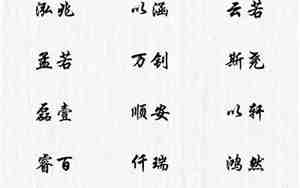 泓兆 以涵 云若
孟若 万钊 斯尧
磊壹 顺安 以轩
睿百 仟瑞 鸿然